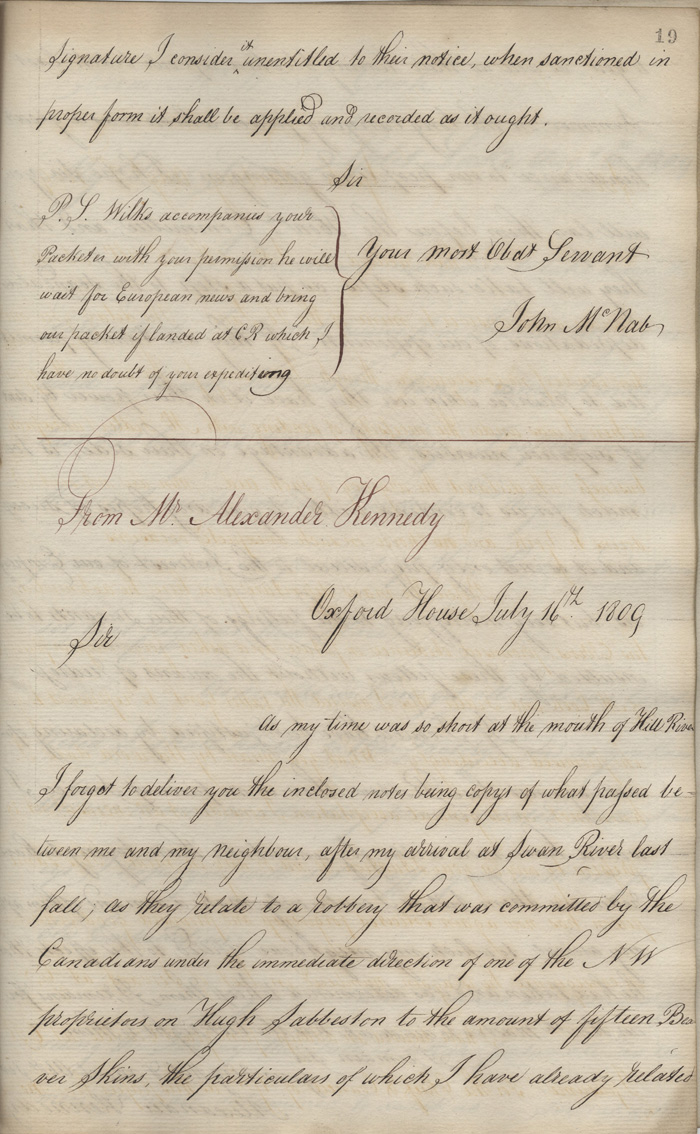 19
Signature I consider it unentitled to their notice, when sanctioned in
proper form it shall be applied and recorded as it ought.
Sir
P.S. Wilks accompanies your
Packeter with your permission he will
wait for European news and bring
our packet if landed at CR which I
have no doubt of your expediting
Your most Obdt Servant
John McNab
From Mr. Alexander Kennedy
Oxford House July 16th. 1809
Sir
As my time was so short at the mouth of Hill River
I forgot to deliver you the inclosed notes being copys of what passed be-
tween me and my neighbour, after my arrival at Swan River last
fall; as they relate to a robbery that was committed by the
Canadians under the immediate direction of one of the NW
proprietors on Hugh Sabbeston to the amount of fifteen Bea
ver Skins, the particulars of which I have already related